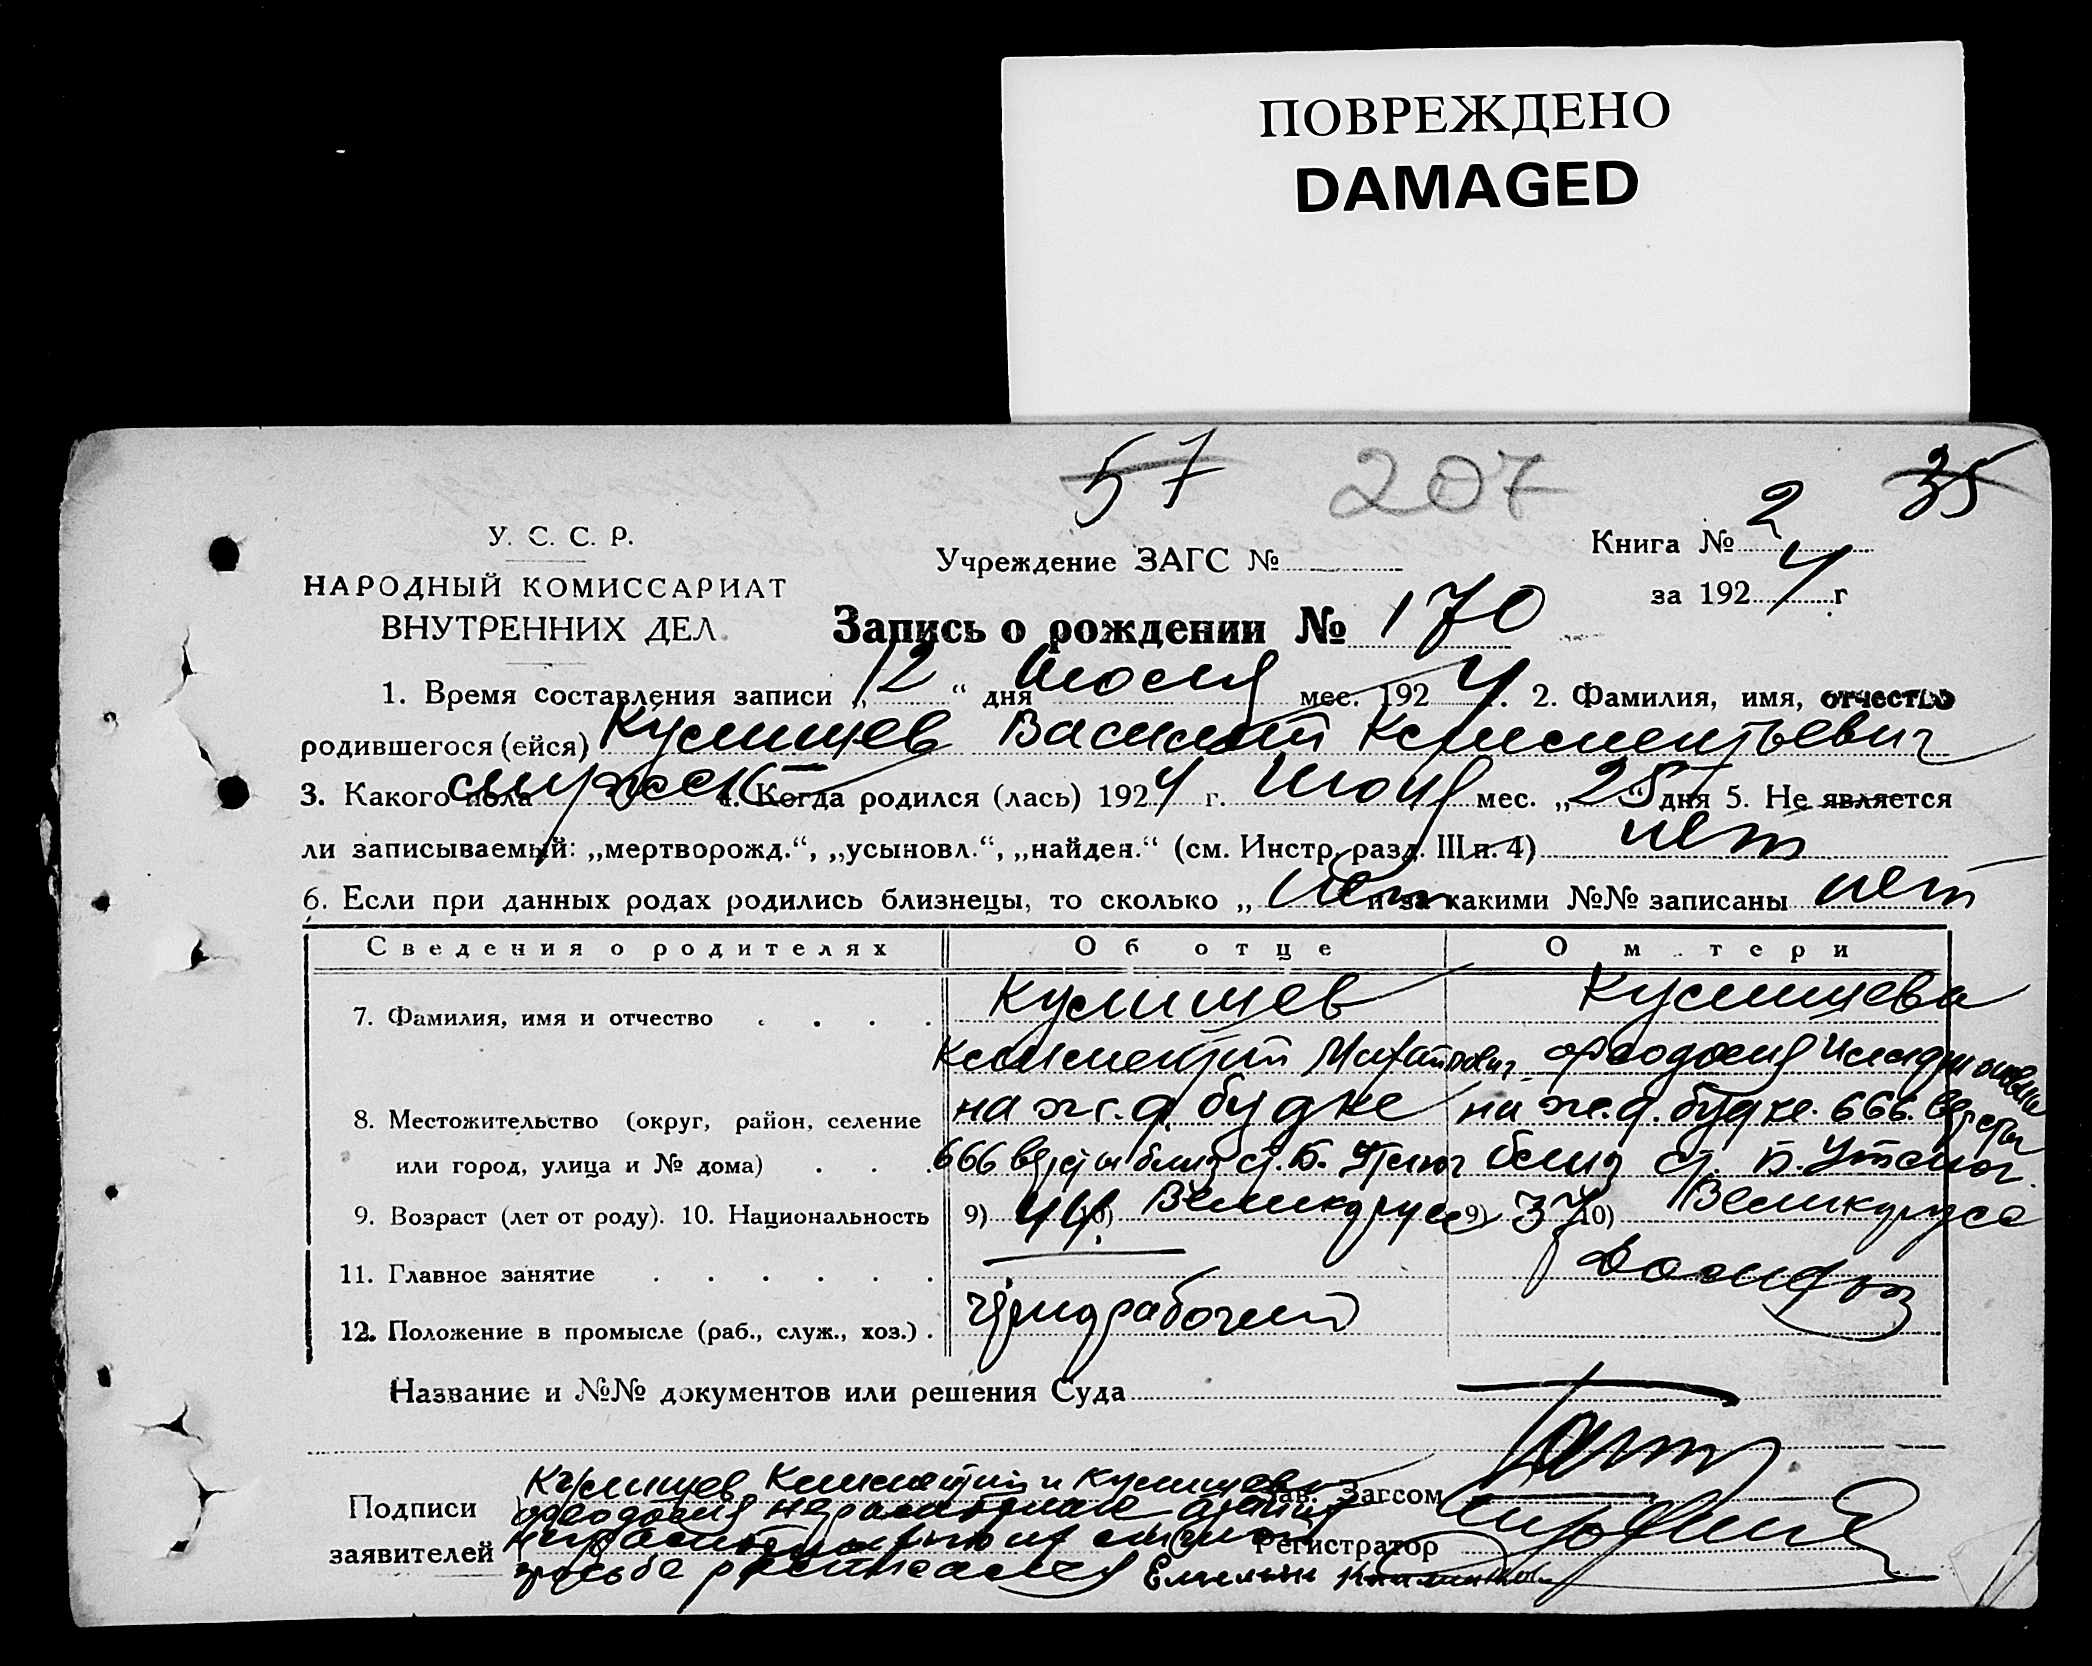 ПОВРЕЖДЕНО
DAMAGED
57 207 35
У. С. С. Р.
НАРОДНЫЙ КОМИССАРИАТ
ВНУТРЕННИХ ДЕЛ.
Учреждение ЗАГС №
Книга № 2
за 1924 г
Запись о рождении № 170
1. Время составления записи „12“ дня Июля мес. 1924 г. 2. Фамилия, имя, отчество
родившегося (ейся) Кулишев Василий Клементьевич
3. Какого пола мужск 4. Когда родился (лась) 1924 г. Июня мес. „25“ дня 5. Не является
ли записываемый: „мертворожд.“, „усыновл.“, „найден.“ (см. Инстр. разд. III п. 4) нет
6. Если при данных родах родились близнецы, то сколько „нет и за какими №№ записаны нет
Сведения о родителях Об отце О м тери
7. Фамилия, имя и отчество Кулишев Кулишева
Клементий феодосия
8. Местожительство (округ, район, селение на ж.д. будке на ж.д. будке. 666. версты
или город, улица и № дома) 666 версты близ ст. Б. близ ст. Б.
9. Возраст (лет от роду). 10. Национальность 9) 44 10) Великорусс 9) 37 10) Великорусса
11. Главное занятие Домохоз
12. Положение в промысле (раб., служ., хоз.) чернорабочий
Название и №№ документов или решения Суда
Подписи заявителей Кулишев Клементий и Кулишева
феодосия неграмотные а за них
просьбе расписался Емельян
Зав. Загсом
Регистратор